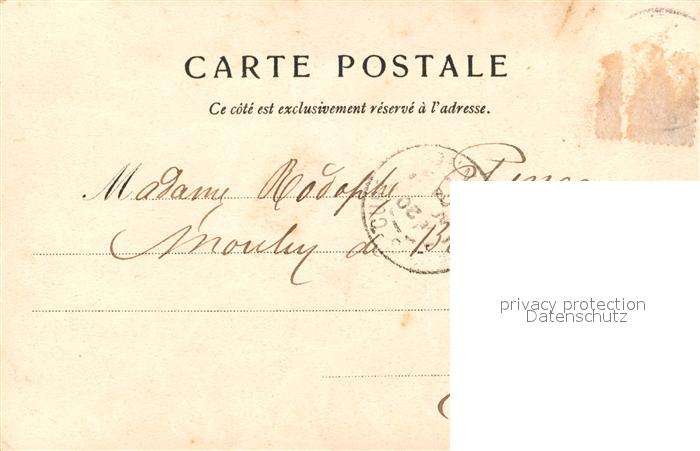 CARTE POSTALE
Ce côté est exclusivement réservé à l'adresse.
Madame Rodolphe
Moulin de
privacy protection
Datenschutz